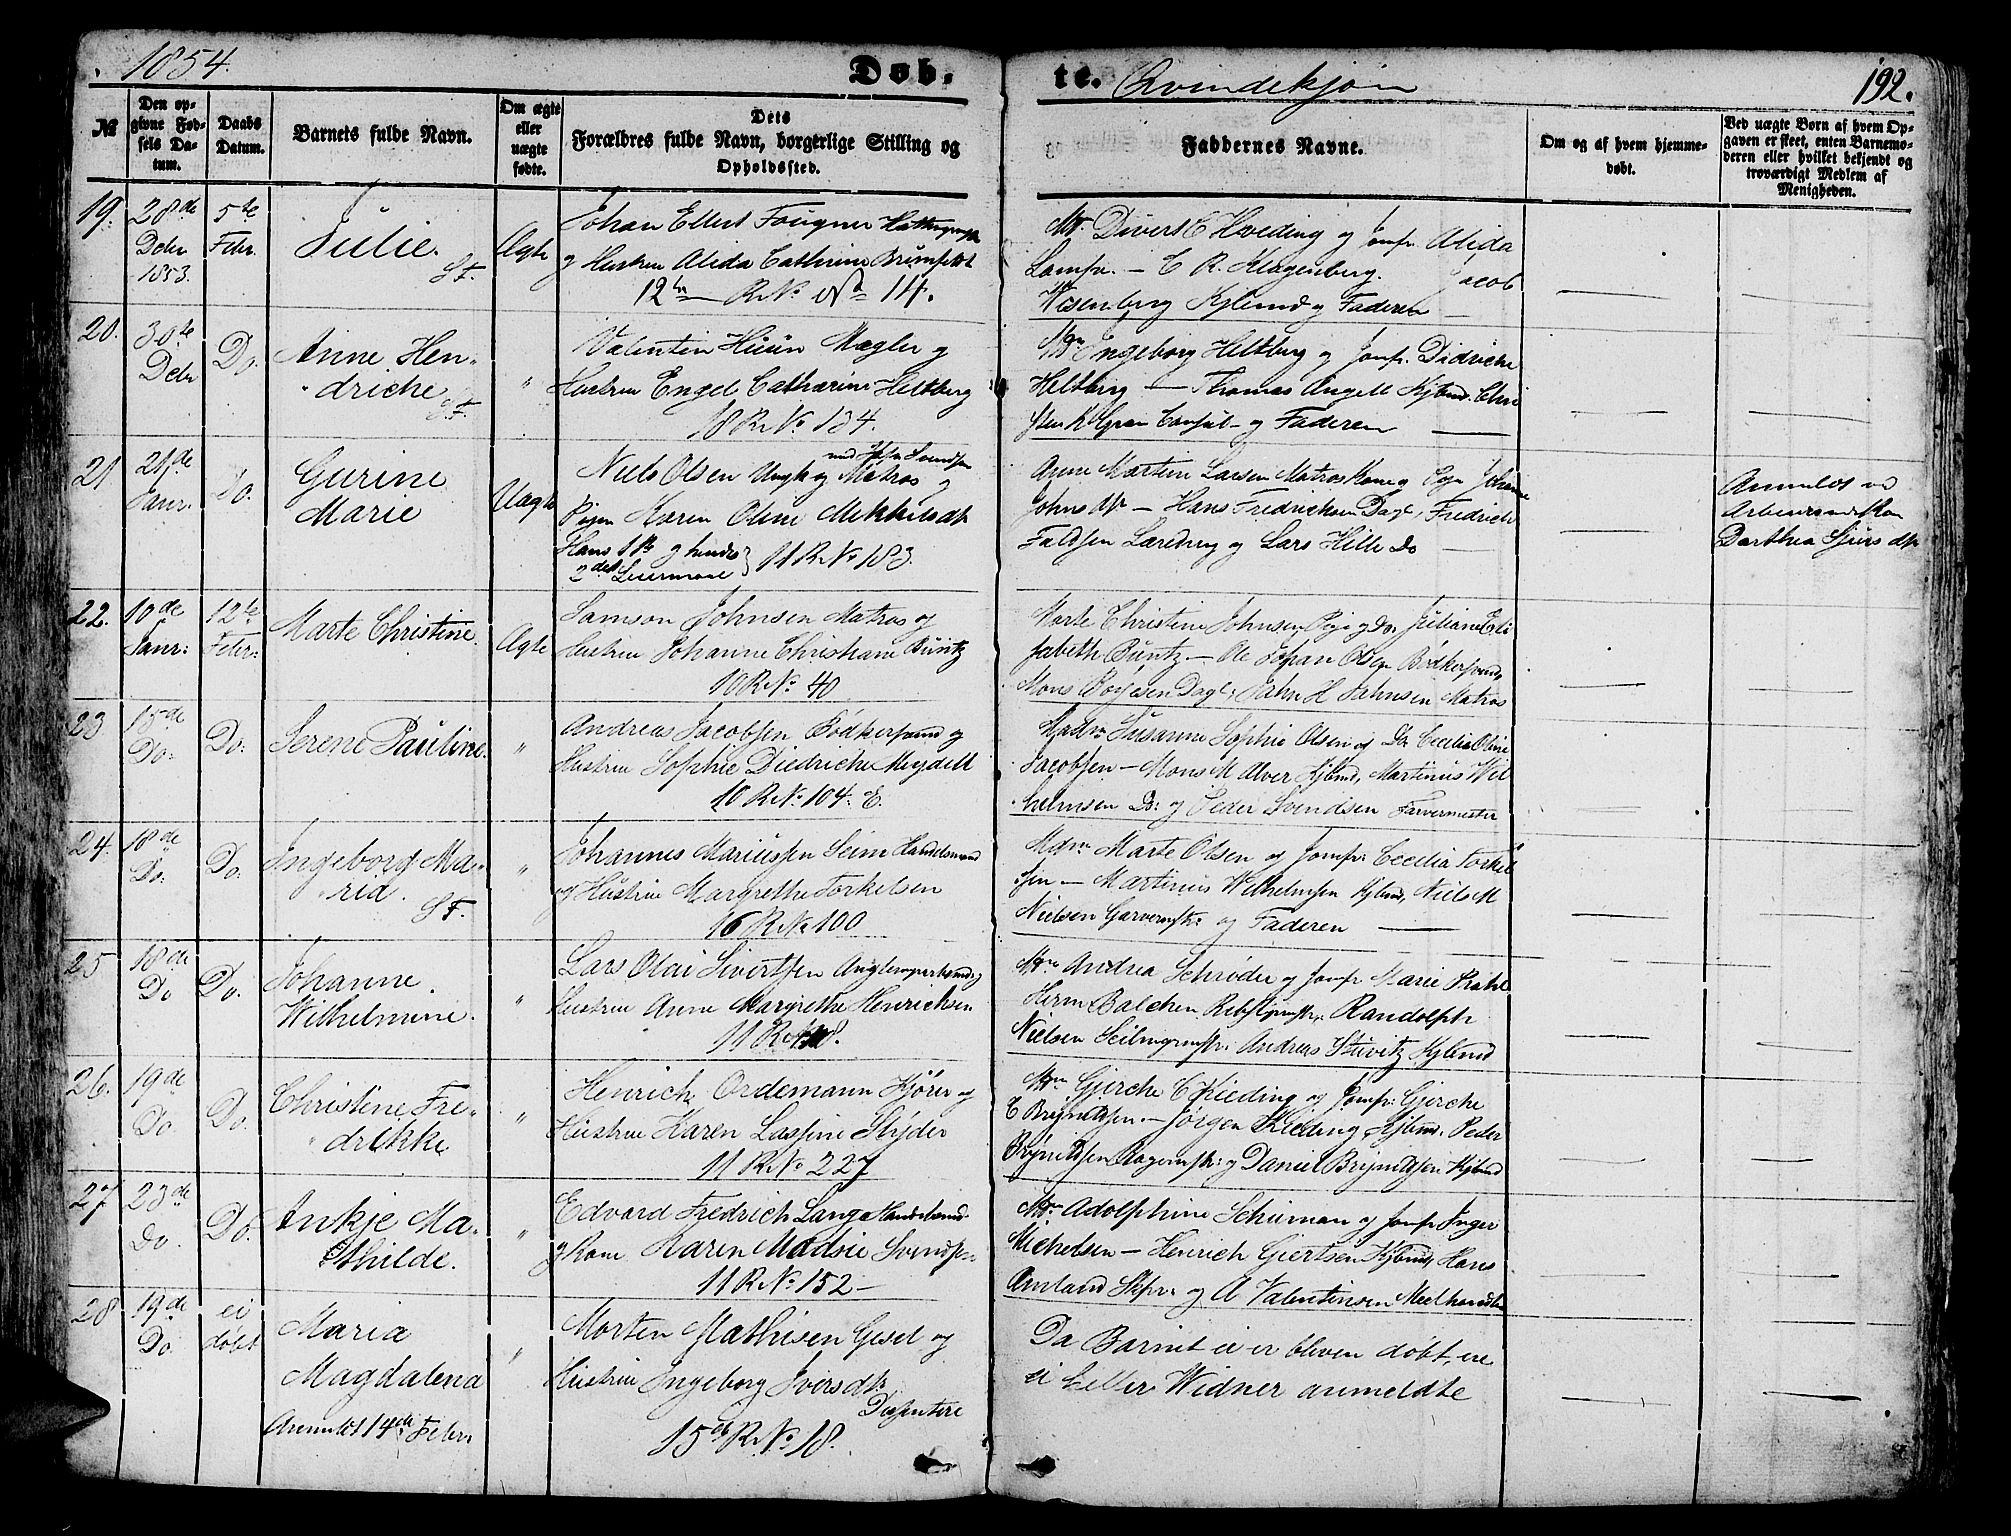 1854.
Døb.
te. Qvindekjøn
192.
№
Den opgivne Fødsels Datum.
Daabs Datum.
Barnets fulde Navn.
Om ægte eller uægte fødte.
Dets Forældres fulde Navn, borgerlige Stilling og Opholdssted.
Faddernes Navne.
Om og af hvem hjemmedøbt.
Ved uægte Børn af hvem Opgaven er skeet, enten Barnemoderen eller hvilket bekjendt og troværdigt Medlem af Menigheden.
19. 28de Decbr 1853. 5te Febr. Julie. S F. Ægte
Johan Ellert Fougner
og Hustrue Alida Cathrine
12te R. No 14.
C Hveding og Jomfr. Alida
C R. Klagenberg. Jacob
Wesenberg Kjbmd og Faderen
20. 30te Decbr Do. Anne Hen-
driche S F. "
Valentin Mægler og
Hustrue Engel Catharine Heltberg
18 R. No. 134.
Ingeborg Heltberg og Jomfr. Didriche
Heltberg — Thomas Angell Kjbmd. Chri
sten K Gran Consul og Faderen
21 21de Janr. Do. Gurine
Marie Uægte
Niels Olsen Ungk og Matros
Pigen Maren Oline Mikkelsdtr
Hans 1ste og hendes
2det Leiermaal 11 R. No 183.
Anne Martine Larsen Matros Kone og Pige
Johns dtr — Hans Fredriksen Dagl, Fredrich
Faldsen Læredreng og Lars Hille Do
Anmeldt ved
Arbeidsmandskone
Dorthea Sjurs dtr
22. 10de Janr: 12te Febr: Marte Christine. Ægte
Samson Johnsen Matros og
Hustrue Johanne Christiane Büntz
10 R. No. 40
Marte Christine Johnsen Pige og Do. Juliane Eli
sabeth Büntz — Ole Johan Olsen Bødkersvend,
Mons Dagl, John H Johnsen Matros
23 15de Do: Do: Serene Pauline. "
Andreas Jacobsen Bødkersvend og
Hustrue Sophie Diedriche Meydell
10 R. No. 104. E.
Madm Susanne Sophie Olsen og Do Cecilia Oline
Jacobsen — Mons M Alver Kjbmd, Martinus Wil
helmsen Do: og Peder Svendsen Farvermester
24. 18de Do: Do. Ingeborg Ma-
rid. S F. "
Johannes Mariussen Seim Handelsmand
og Hustrue Margrethe Torkelsen
16 R. No 100
Mdm Marte Olsen og Jomfr: Cecilia Torkel
sen — Martinus Wilhelmsen Kjbmd, Niels M
Nielsen Garvermstr. og Faderen
25 18de Do Do. Johanne
Wilhelmine. "
Lars Olai Sivertsen
Hustrue Anne Margrethe Henrichsen
11 R.
Mdm Andrea Schrøder og Jomfr Marie
Herm Balchen Rebslgrmstr, Randolph
Nielsen Seilmgrmstr. Andreas Stüwitz Kjbmd
26. 19de Do Do. Christine Fre-
drikke "
Henrich Ordemann Kjører og
Hustrue Karen Lassine Strÿder
11 R. No. 227
Mdm Gjerche C Kieding og Jomfr: Gjerche
E Bryndtsen. — Jørgen Kieding, Kjbmd. Peder
Bryndtsen Bagermstr: og Daniel Bryndtsen Kjbmd
27 23de Do. Do. Ankje Ma-
thilde. "
Edvard Fredrich Lange Handelsmd
og Kone Karen Madsie Svendsen
11 R. No. 152 —
Mdm Adolphine Schuman og Jomfr Inger
Michelsen — Henrich Giertsen Kjbmd, Hans
Amland Skpr. og A Valentinsen Meelhandler
28 19de Do. ei døbt Maria
Magdalena
Anmeldt 14de Febr. "
Morten Mathisen Gesel og
Hustrue Ingeborg Ivers dtr.
15de R. No 18.
Da Barnet ei er bleven døbt, ere
ei heller Widner anmeldte